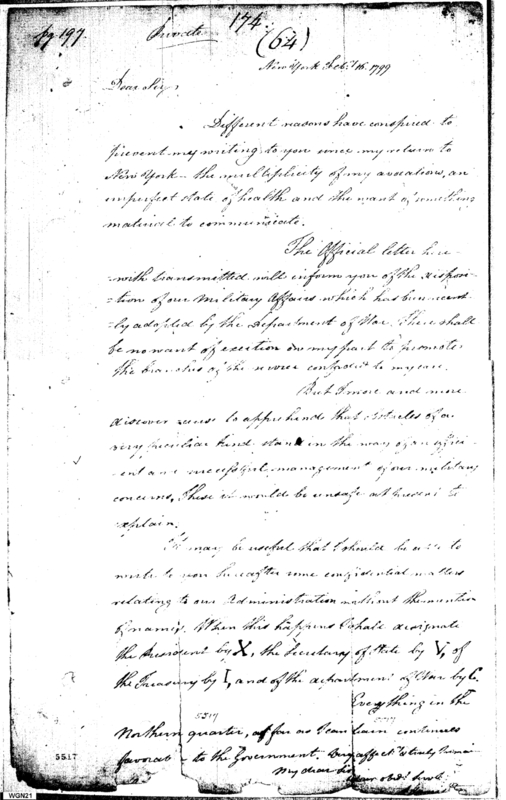 pg 197.
Private
174
(64)
New York Feb.y 16. 1799
Dear Sir,
Different reasons have conspired to
prevent my writing to you since my return to
New York — the multiplicity of my avocations, an
imperfect state of health and the want of something
material to communicate.
The Official letter here-
with transmitted will inform you of the disposi-
-tion of our Military Affairs which has been recent-
-ly adopted by the Department of War. There shall
be no want of exertion on my part to promote
the branches of the service confided to my care.
But I more and more
discover cause to apprehend that obstacles of a
very peculiar kind stand in the way of an effici-
-ent and successful management of our military
concerns. These it would be unsafe at present to
explain.
It may be useful that I should be able to
write to you hereafter some confidential matters
relating to our Administration without the mention
of names. When this happens I shall designate
the President by X, the Secretary of State by V, of
the Treasury by I, and of the department of War by C.
Everything in the
Northern quarter, as far as I can learn continues
favorable to the Government.
My dear Sir
5517
5517
WGN21